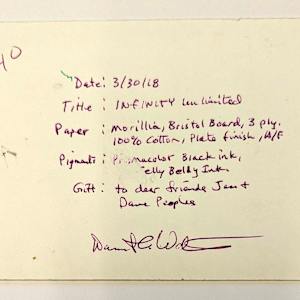 40
Date: 3/30/18
Title: INFINITY Unlimited
Paper: Morilla, Bristol Board, 3 ply.
100% Cotton, Plate finish, A/F
Pigments: Prismacolor Black ink,
Belly Ink.
Gift: to dear friends &
Dave Peoples